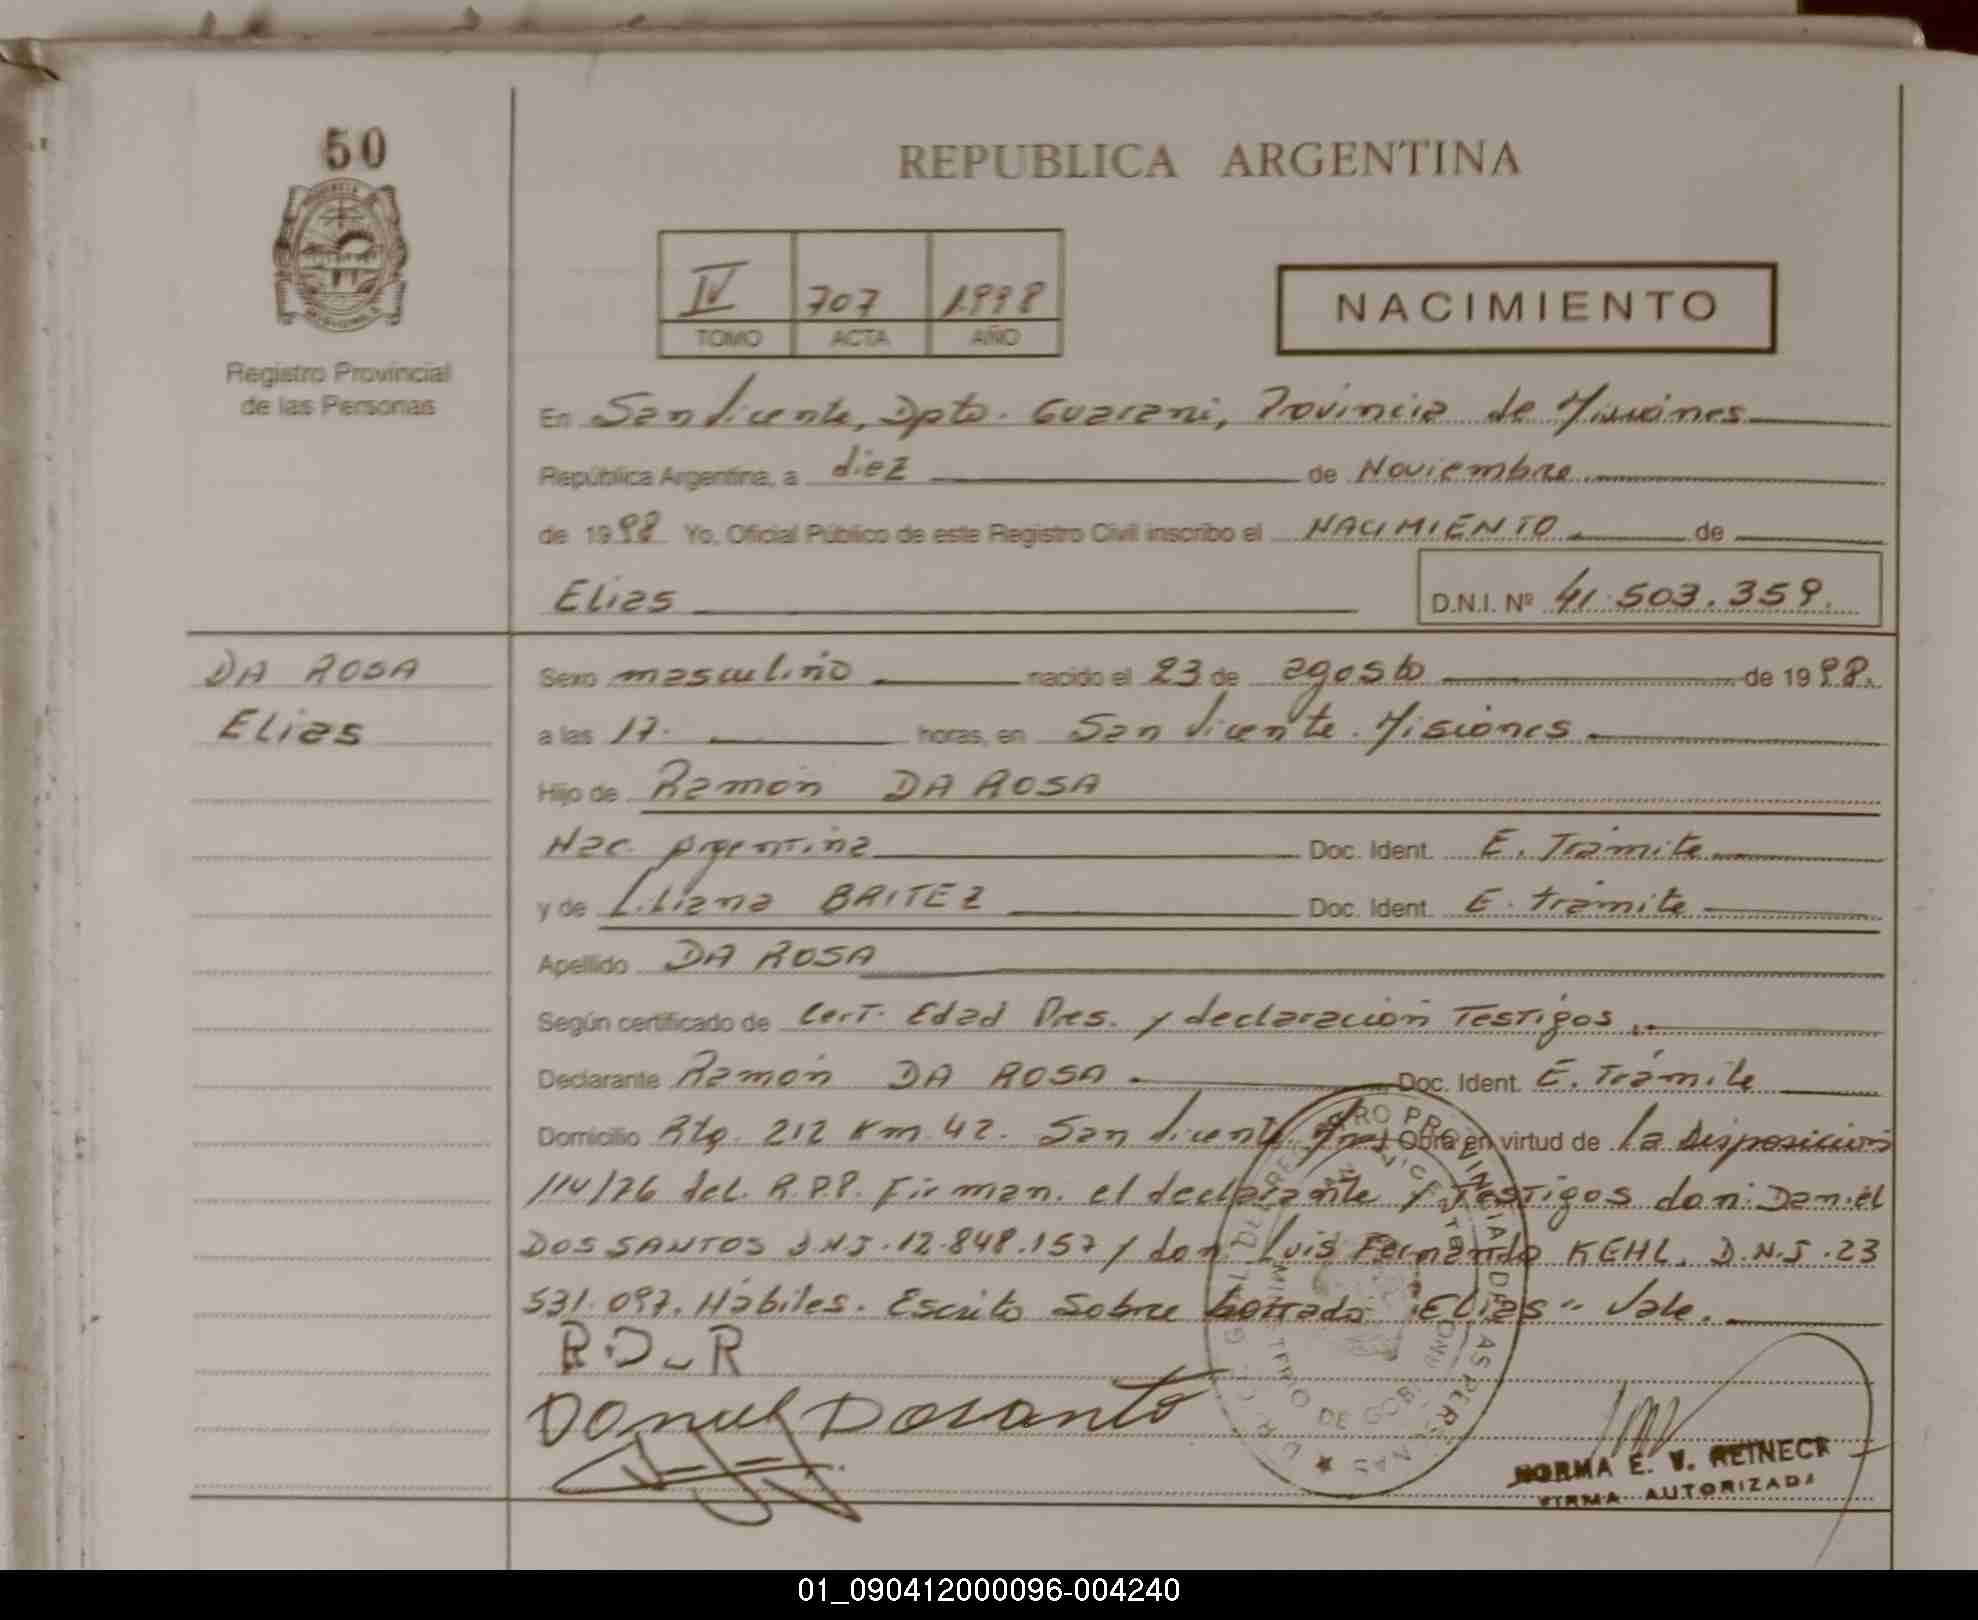 50
REPUBLICA ARGENTINA
IV 707 1998
TOMO ACTA AÑO
NACIMIENTO
Registro Provincial
de las Personas
En San Vicente, Dpto. Guarani, Provincia de Misiones
República Argentina, a diez de Noviembre
de 1998 Yo, Oficial Público de este Registro Civil inscribo el NACIMIENTO de
Elias D.N.I. Nº 41.503.359.
DA ROSA
Elias
Sexo masculino nacido el 23 de agosto de 1998.
a las 17. horas, en San Vicente. Misiones
Hijo de Ramón DA ROSA
Nac. Argentina Doc. Ident. E. Trámite
y de Liliana BRITEZ Doc. Ident. E. trámite
Apellido DA ROSA
Según certificado de Cert. Edad Pres. y declaración Testigos.
Declarante Ramón DA ROSA Doc. Ident. E. Trámite
Domicilio Rta. 212 Km 42. San Vicente Mnes Obra en virtud de la disposición
114/76 del. R.P.P. Firman. el declarante y Testigos don: Daniel
DOS SANTOS D.N.I. 12.848.157 y don Luis Fernando KEHL. D.N.I. 23
531.097. Hábiles. Escrito sobre borrado "Elias" Vale.
R.D.R
Daniel Dosanto
REGISTRO PROVINCIAL DE LAS PERSONAS
MINISTERIO DE GOBI
NORMA E. V. REINECK
FIRMA AUTORIZADA
01_090412000096-004240